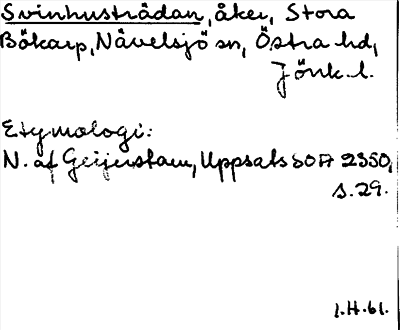 Svinhusträdan, åker, Stora
Bökarp, Nävelsjö sn, Östra hd,
Jönk. l.
Etymologi:
N. af Geijerstam, Uppsats SOA 2350,
s. 29.
1.H.61.